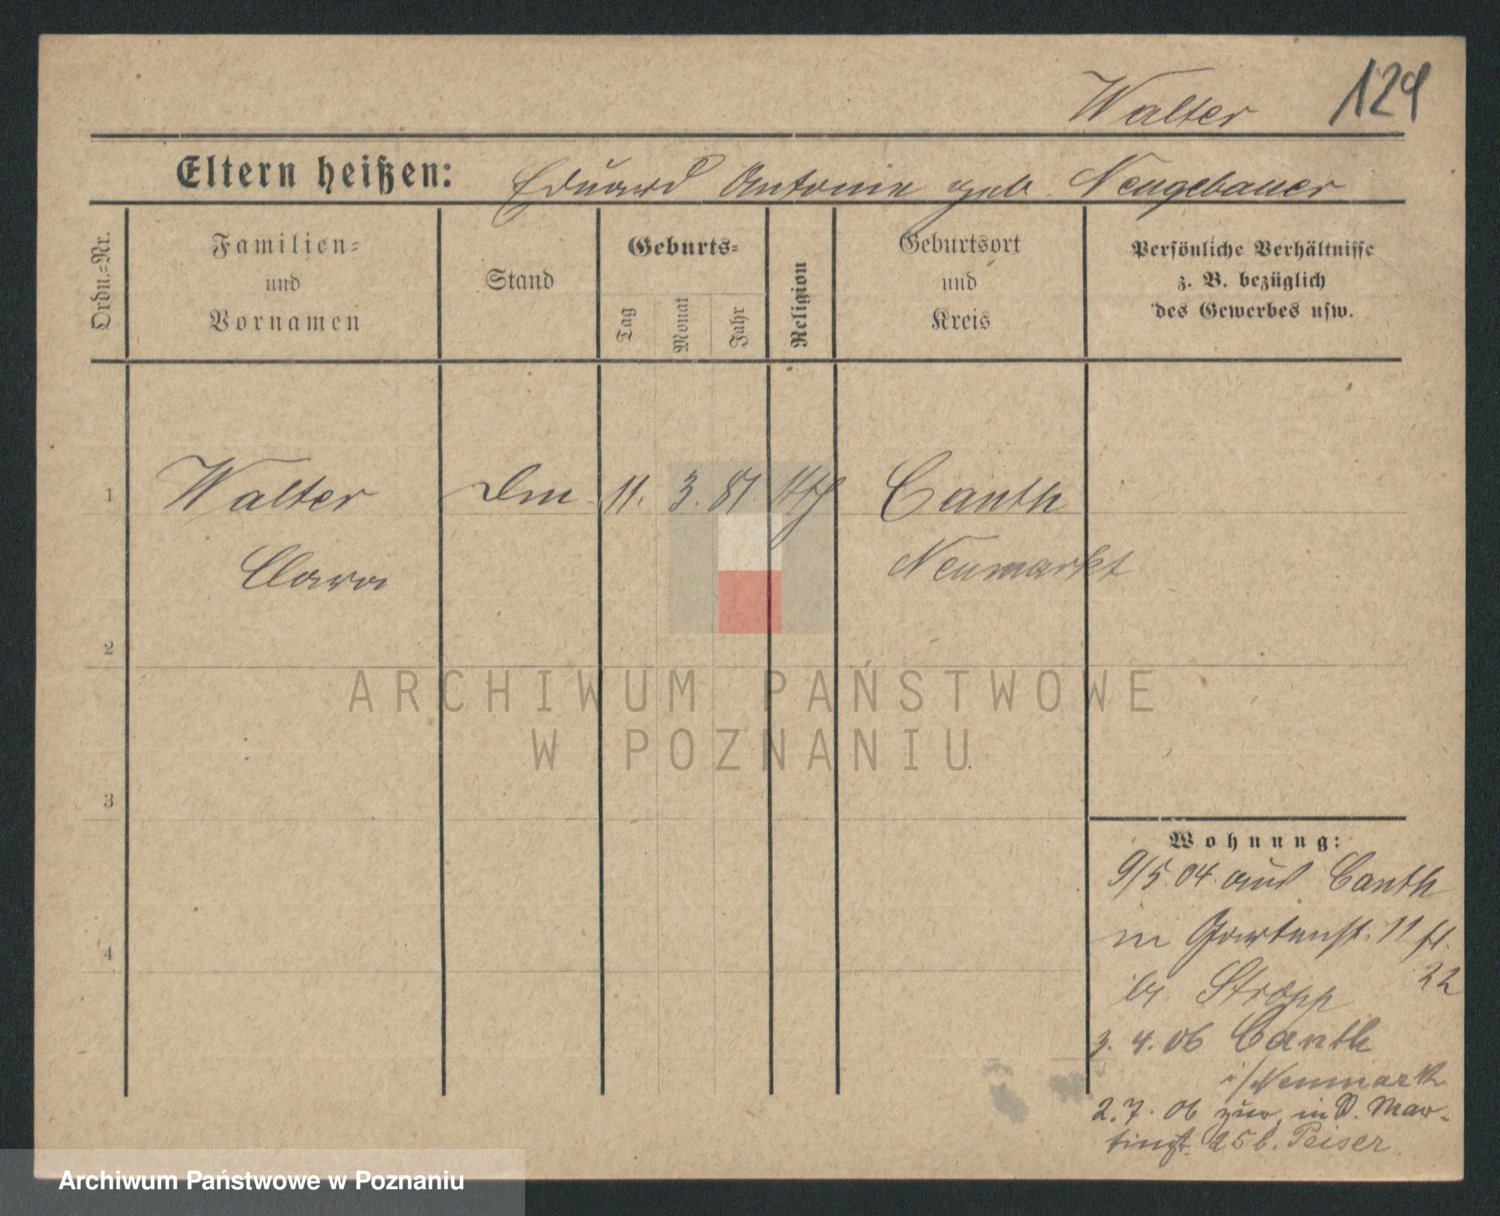 Walter 129
Eltern heißen: Eduard Antonie geb. Neugebauer
Ordn.=Nr.
Familien=
und
Vornamen
Stand
Geburts=
Tag
Monat
Jahr
Religion
Geburtsort
und
Kreis
Persönliche Verhältnisse
z. B. bezüglich
des Gewerbes usw.
1 Walter 11. 3. 81 kth Canth
Clara Neumarkt
2
3
4
Wohnung:
9/5 04 aus Canth
in Gartenst. 11
22
bei
3. 4. 06 Canth
i/Neumark
2. 7. 06 zur. in S. Mar-
tinst. 25 b. Peiser
ARCHIWUM PAŃSTWOWE
W POZNANIU
Archiwum Państwowe w Poznaniu